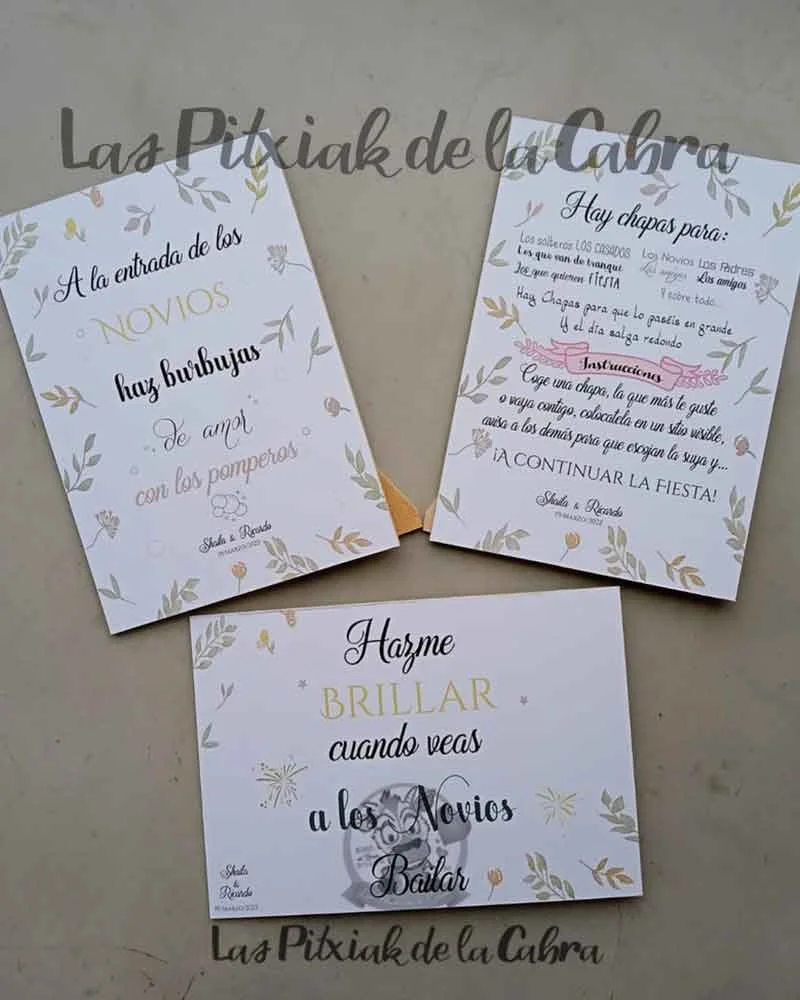 Las Pitxiak de la Cabra
A la entrada de los
NOVIOS
haz burbujas
de amor
con los pomperos
Sheila & Ricardo
Hay chapas para:
Los solteros LOS CASADOS
Los que van de tranqui
Los que quieren FIESTA
Los Novios Los Padres
Las amigas Los amigos
Y sobre todo...
Hay Chapas para que lo paséis en grande
Y el día salga redondo
Instrucciones
Coge una chapa, la que más te guste
o vaya contigo, colocatela en un sitio visible,
avisa a los demás para que escojan la suya y...
¡A CONTINUAR LA FIESTA!
Sheila & Ricardo
Hazme
BRILLAR
cuando veas
a los Novios
Bailar
Sheila
&
Ricardo
Las Pitxiak de la Cabra